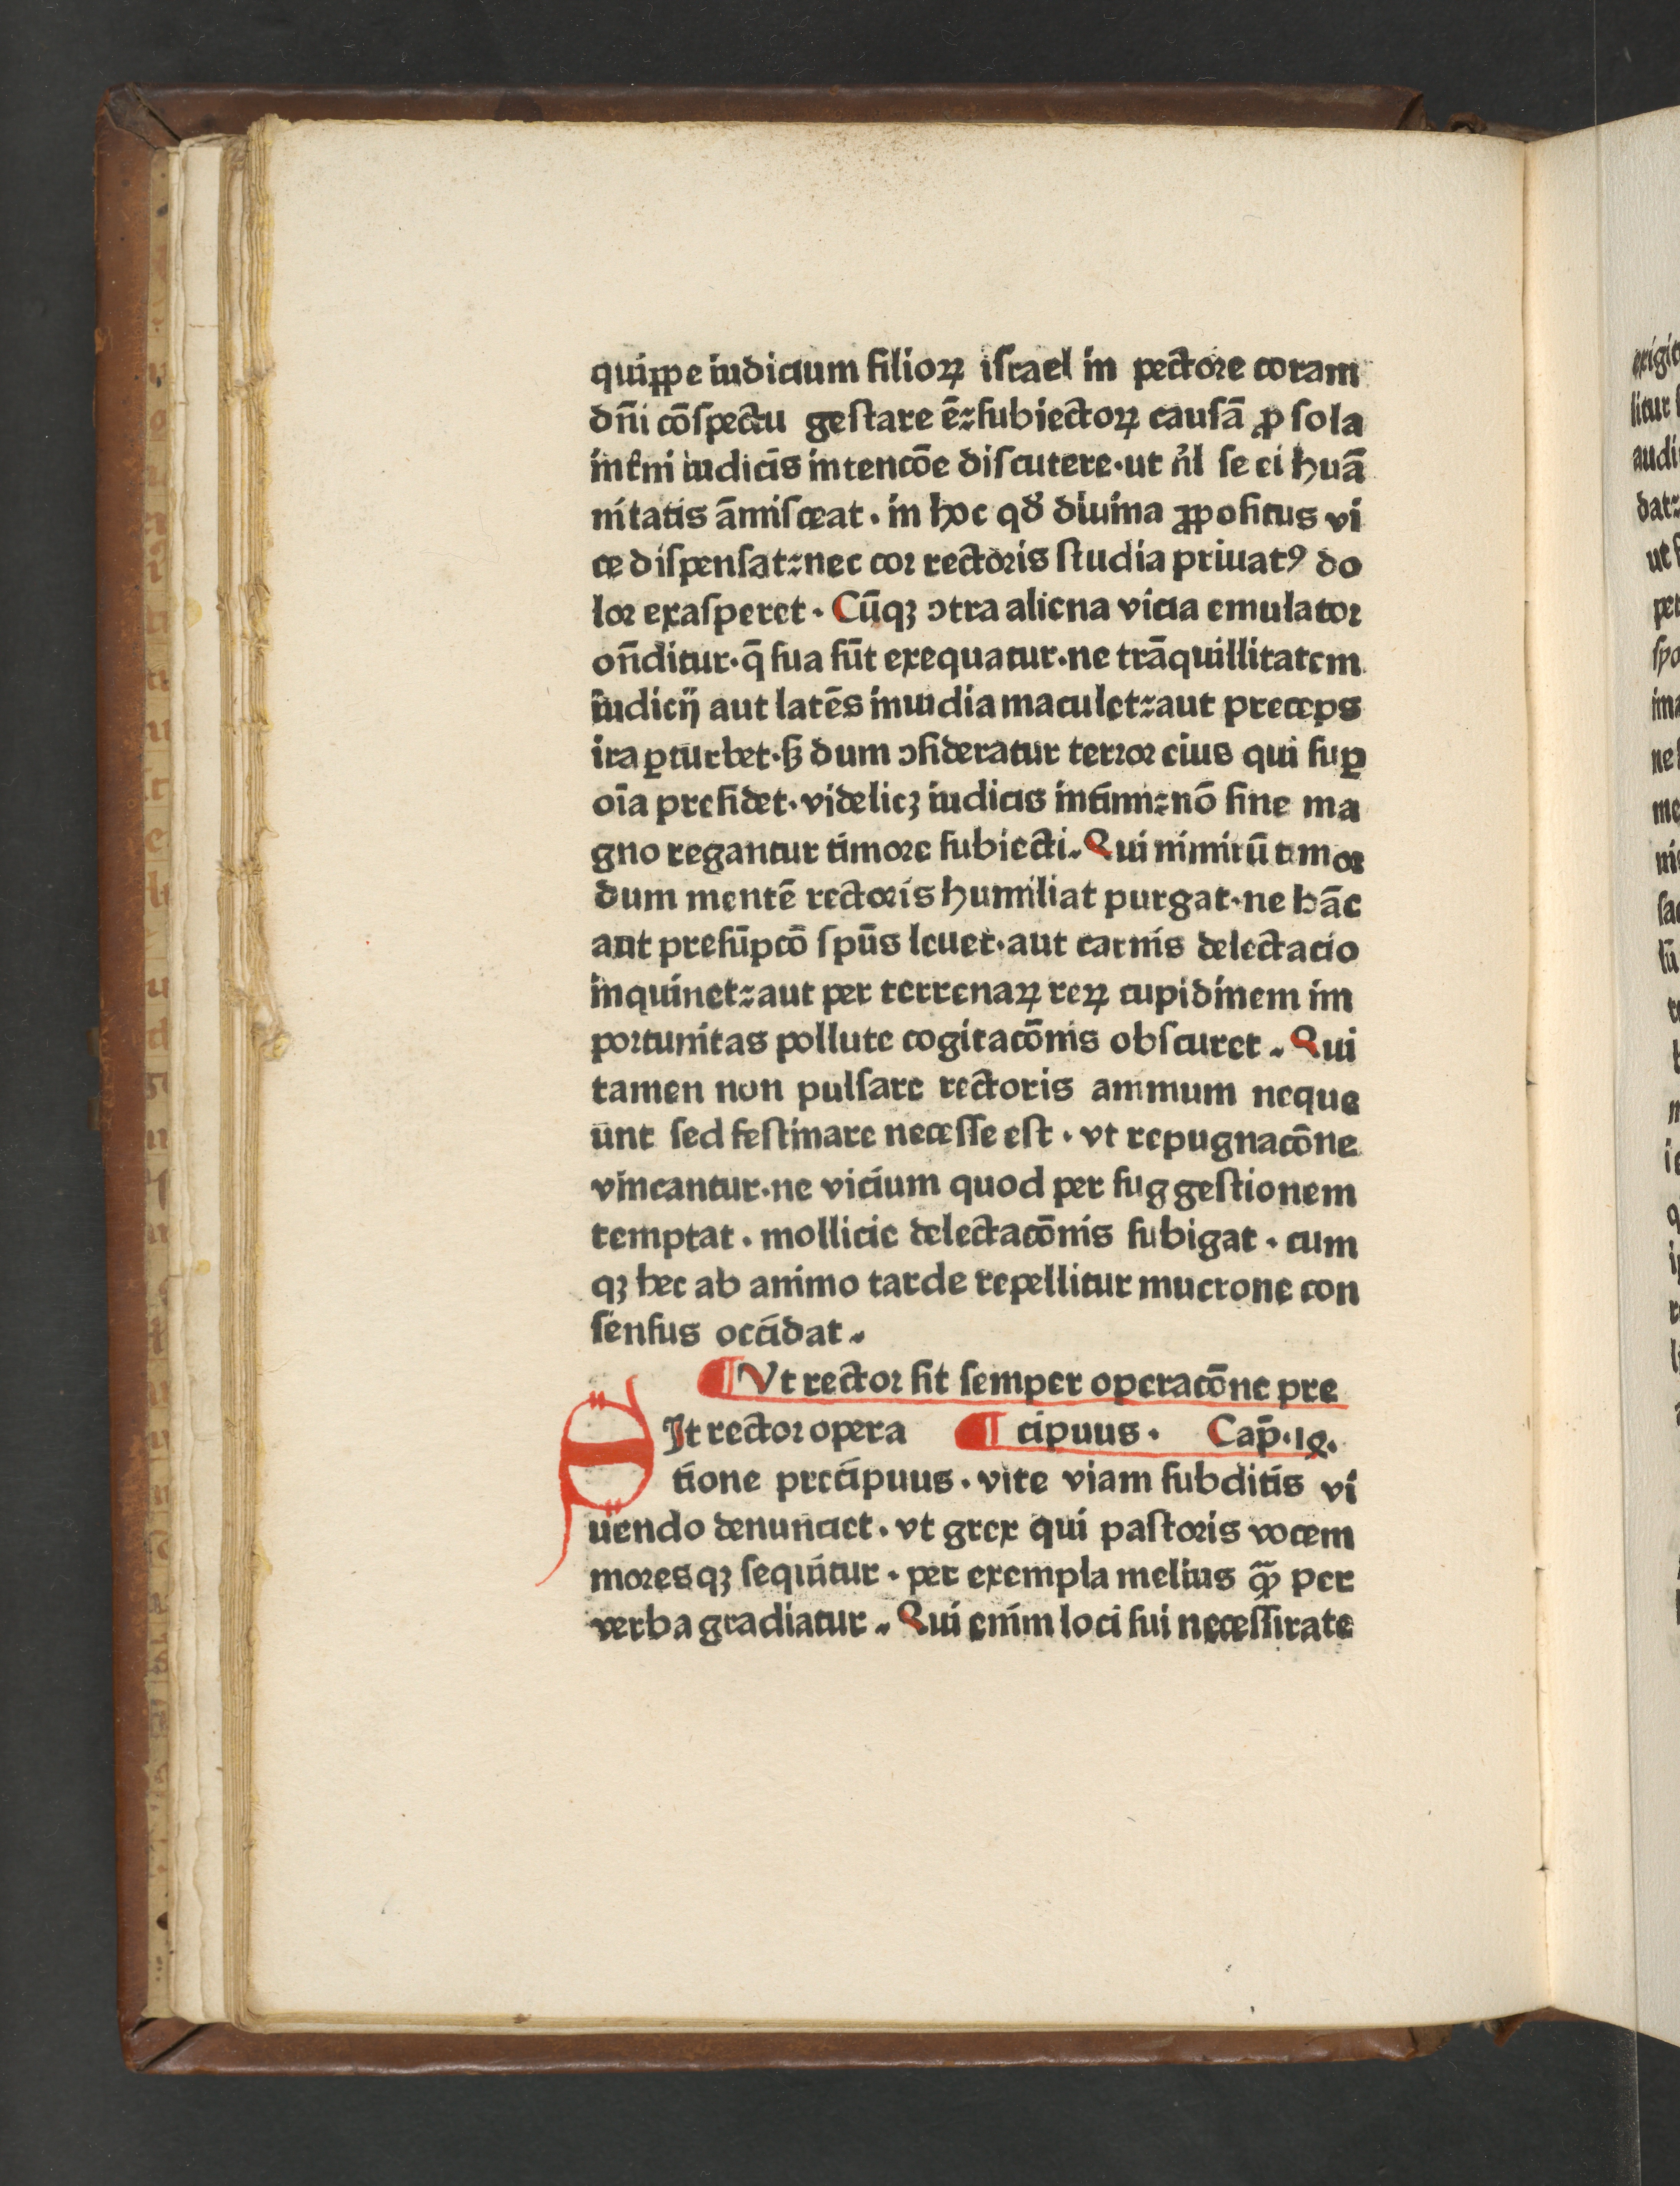 quippe iudicium filioꝝ iſrael in pectore coram
dn̄i cōſpectu geſtare ē: ſubiectoꝝ cauſā ꝓ ſola
int̄ni iudicis intencōe diſcutere · ut n̄l ſe ei huā
nitatis āmiſceat · in hoc qđ diuina ꝓpoſitus vi
ce diſpenſat: nec cor rectoris ſtudia priuatꝰ do
lor exaſperet · Cūqꝫ ↄtra aliena vicia emulator
on̄ditur · q̄ ſua ſūt exequatur · ne trāquillitatem
iudicij aut latēs inuidia maculet: aut preceps
ira ꝑturbet · ſꝫ dum ↄſideratur terror eius qui ſuꝑ
oīa preſidet · videlicꝫ iudicis intimi: nō ſine ma
gno regantur timore ſubiecti. Qui nimirū timor
dum mentē rectoris humiliat purgat · ne hāc
aut preſūpcō ſpūs leuet · aut carnis delectacio
inquinet: aut per terrenaꝝ reꝝ cupidinem im
portunitas pollute cogitacōnis obſcuret . Qui
tamen non pulſare rectoris animum neque
unt ſed feſtinare neceſſe eſt · vt repugnacōne
vincantur · ne vicium quod per ſuggeſtionem
temptat · mollicie delectacōnis ſubigat · cum
qꝫ hec ab animo tarde repellitur mucrone con
ſenſus occidat .
¶ Vt rector ſit ſemper operacōne pre
SIt rector opera ¶ cipuus · Cap̄ · iꝫ.
tione precipuus · vite viam ſubditis vi
uendo denunciet · vt grex qui paſtoris vocem
moresqꝫ ſequitur · per exempla melius ꝙ̄ per
verba gradiatur . Qui enim loci ſui neceſſitate